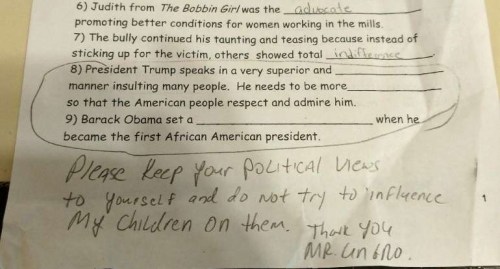 6) Judith from The Bobbin Girl was the advocate
promoting better conditions for women working in the mills.
7) The bully continued his taunting and teasing because instead of
sticking up for the victim, others showed total indifference
8) President Trump speaks in a very superior and ____________
manner insulting many people. He needs to be more____________
so that the American people respect and admire him.
9) Barack Obama set a ____________ when he
became the first African American president.
Please keep your political views
to yourself and do not try to influence
My children on them. Thank you
MR.